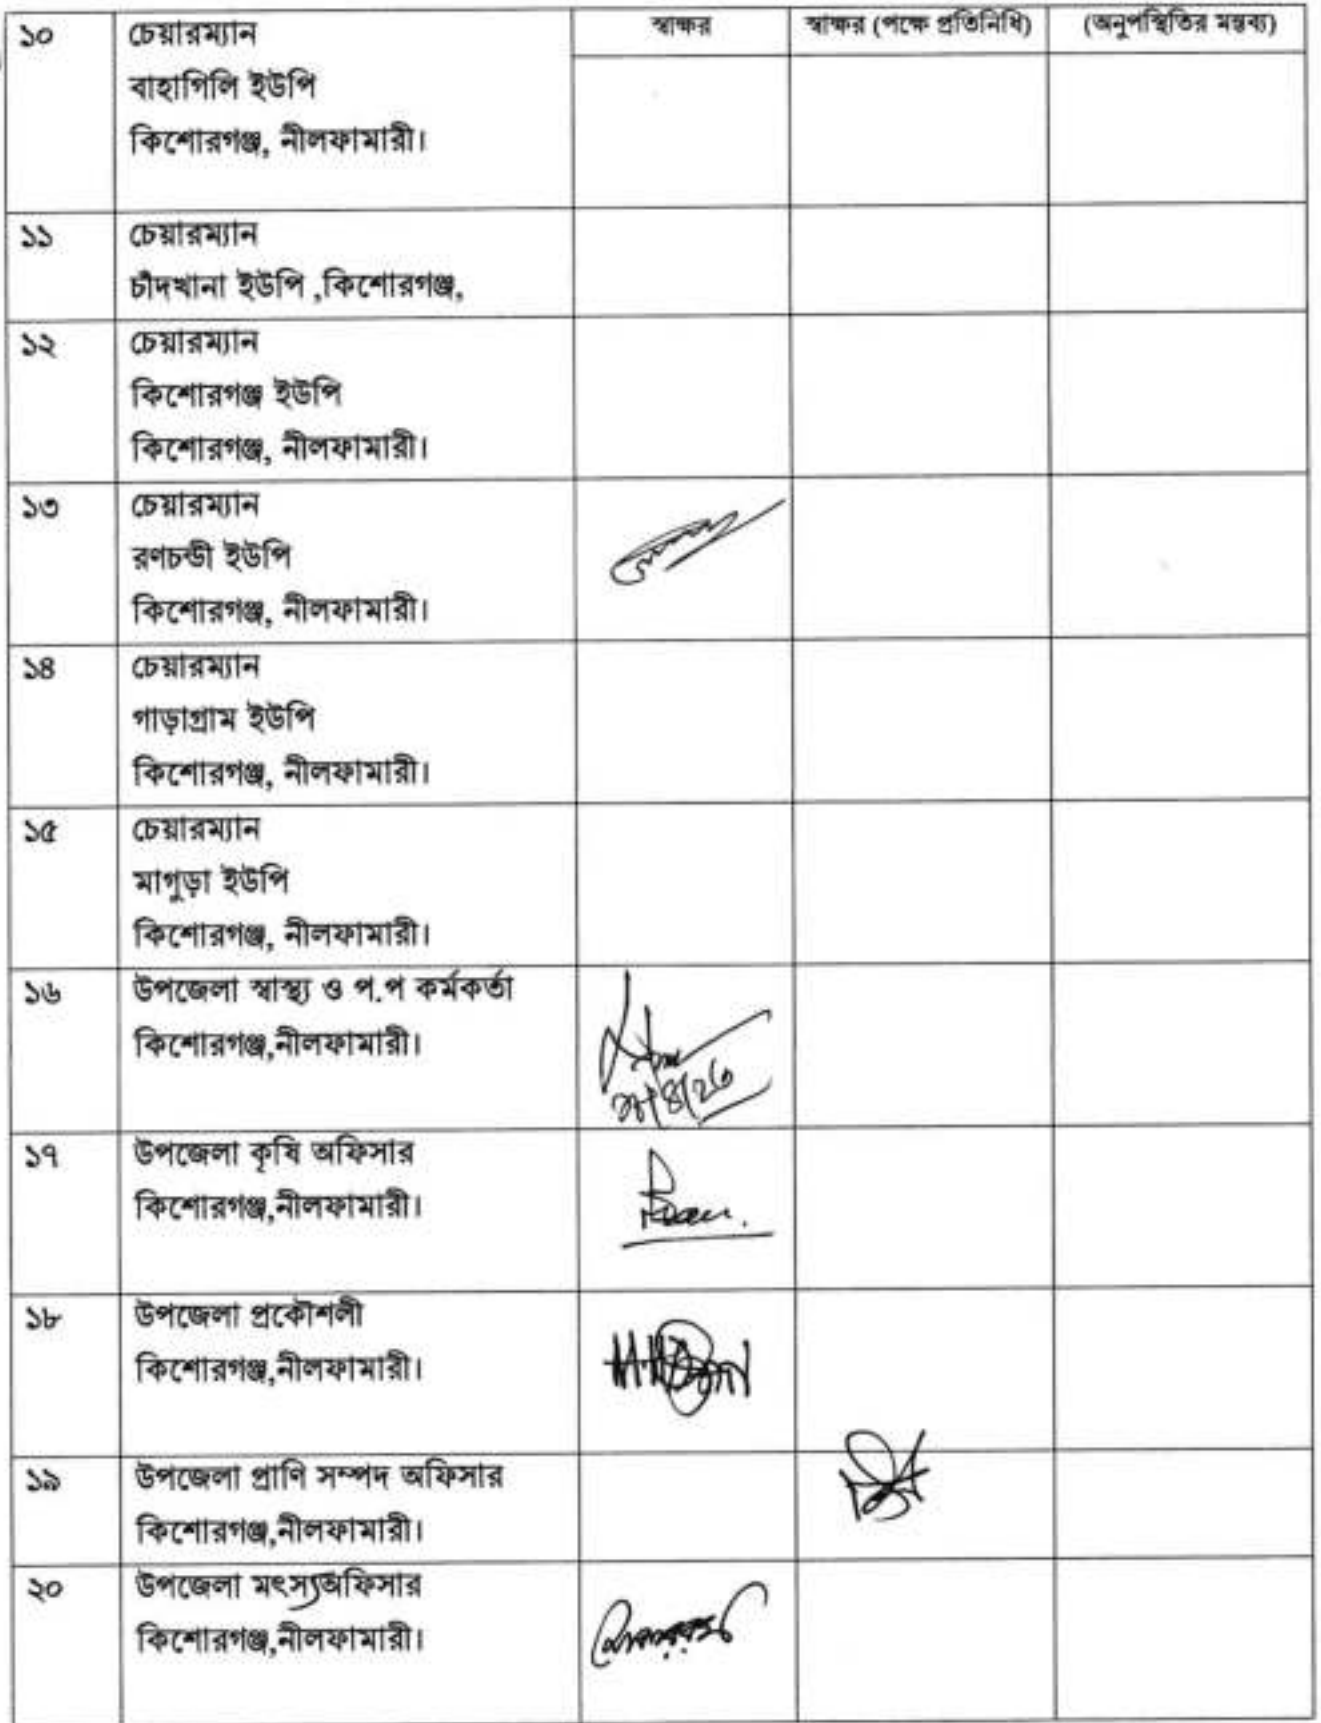 ১০ চেয়ারম্যান স্বাক্ষর স্বাক্ষর (পক্ষে প্রতিনিধি) (অনুপস্থিতির মন্তব্য)
বাহাগিলি ইউপি
কিশোরগঞ্জ, নীলফামারী।
১১ চেয়ারম্যান
চাঁদখানা ইউপি ,কিশোরগঞ্জ,
১২ চেয়ারম্যান
কিশোরগঞ্জ ইউপি
কিশোরগঞ্জ, নীলফামারী।
১৩ চেয়ারম্যান
রণচন্ডী ইউপি
কিশোরগঞ্জ, নীলফামারী।
১৪ চেয়ারম্যান
গাড়াগ্রাম ইউপি
কিশোরগঞ্জ, নীলফামারী।
১৫ চেয়ারম্যান
মাগুড়া ইউপি
কিশোরগঞ্জ, নীলফামারী।
১৬ উপজেলা স্বাস্থ্য ও প.প কর্মকর্তা
কিশোরগঞ্জ,নীলফামারী।
১৭ উপজেলা কৃষি অফিসার
কিশোরগঞ্জ,নীলফামারী।
১৮ উপজেলা প্রকৌশলী
কিশোরগঞ্জ,নীলফামারী।
১৯ উপজেলা প্রাণি সম্পদ অফিসার
কিশোরগঞ্জ,নীলফামারী।
২০ উপজেলা মৎস্যঅফিসার
কিশোরগঞ্জ,নীলফামারী।